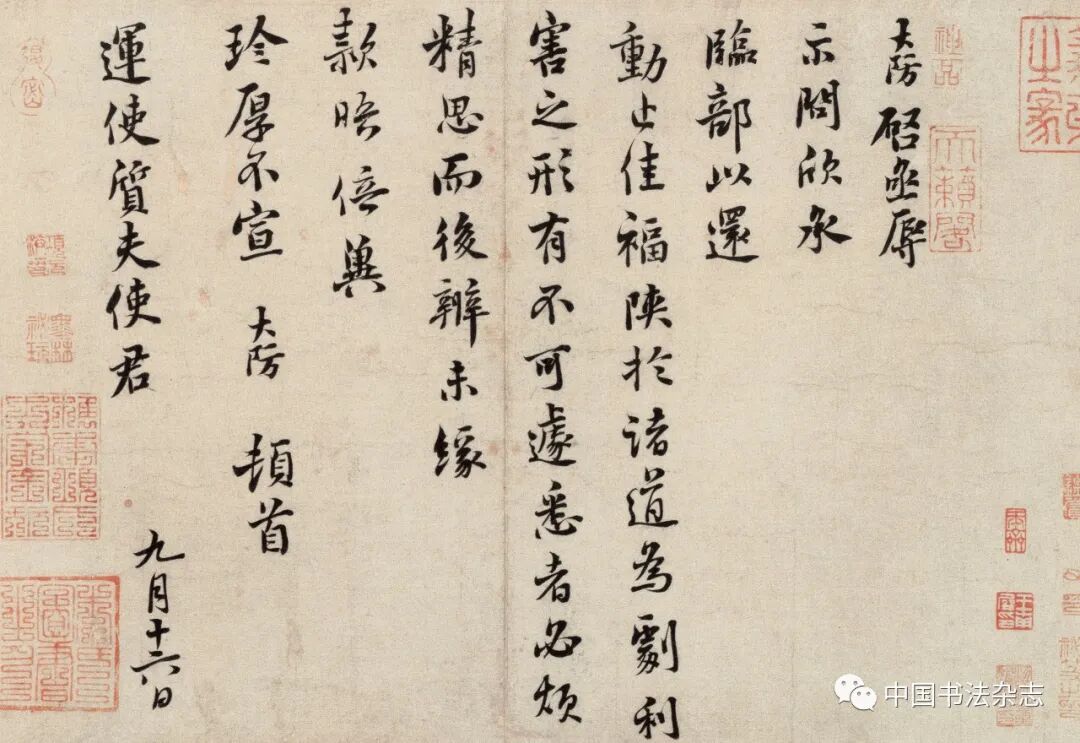 大防啓亟辱
示問欣承
臨部以還
動止佳福陝於諸道為劇利
害之形有不可遽悉者必煩
精思而後辦未緣
款晤倍冀
珍厚不宣 大防 頓首
運使質夫使君
九月十六日
天籟閣
中国书法杂志